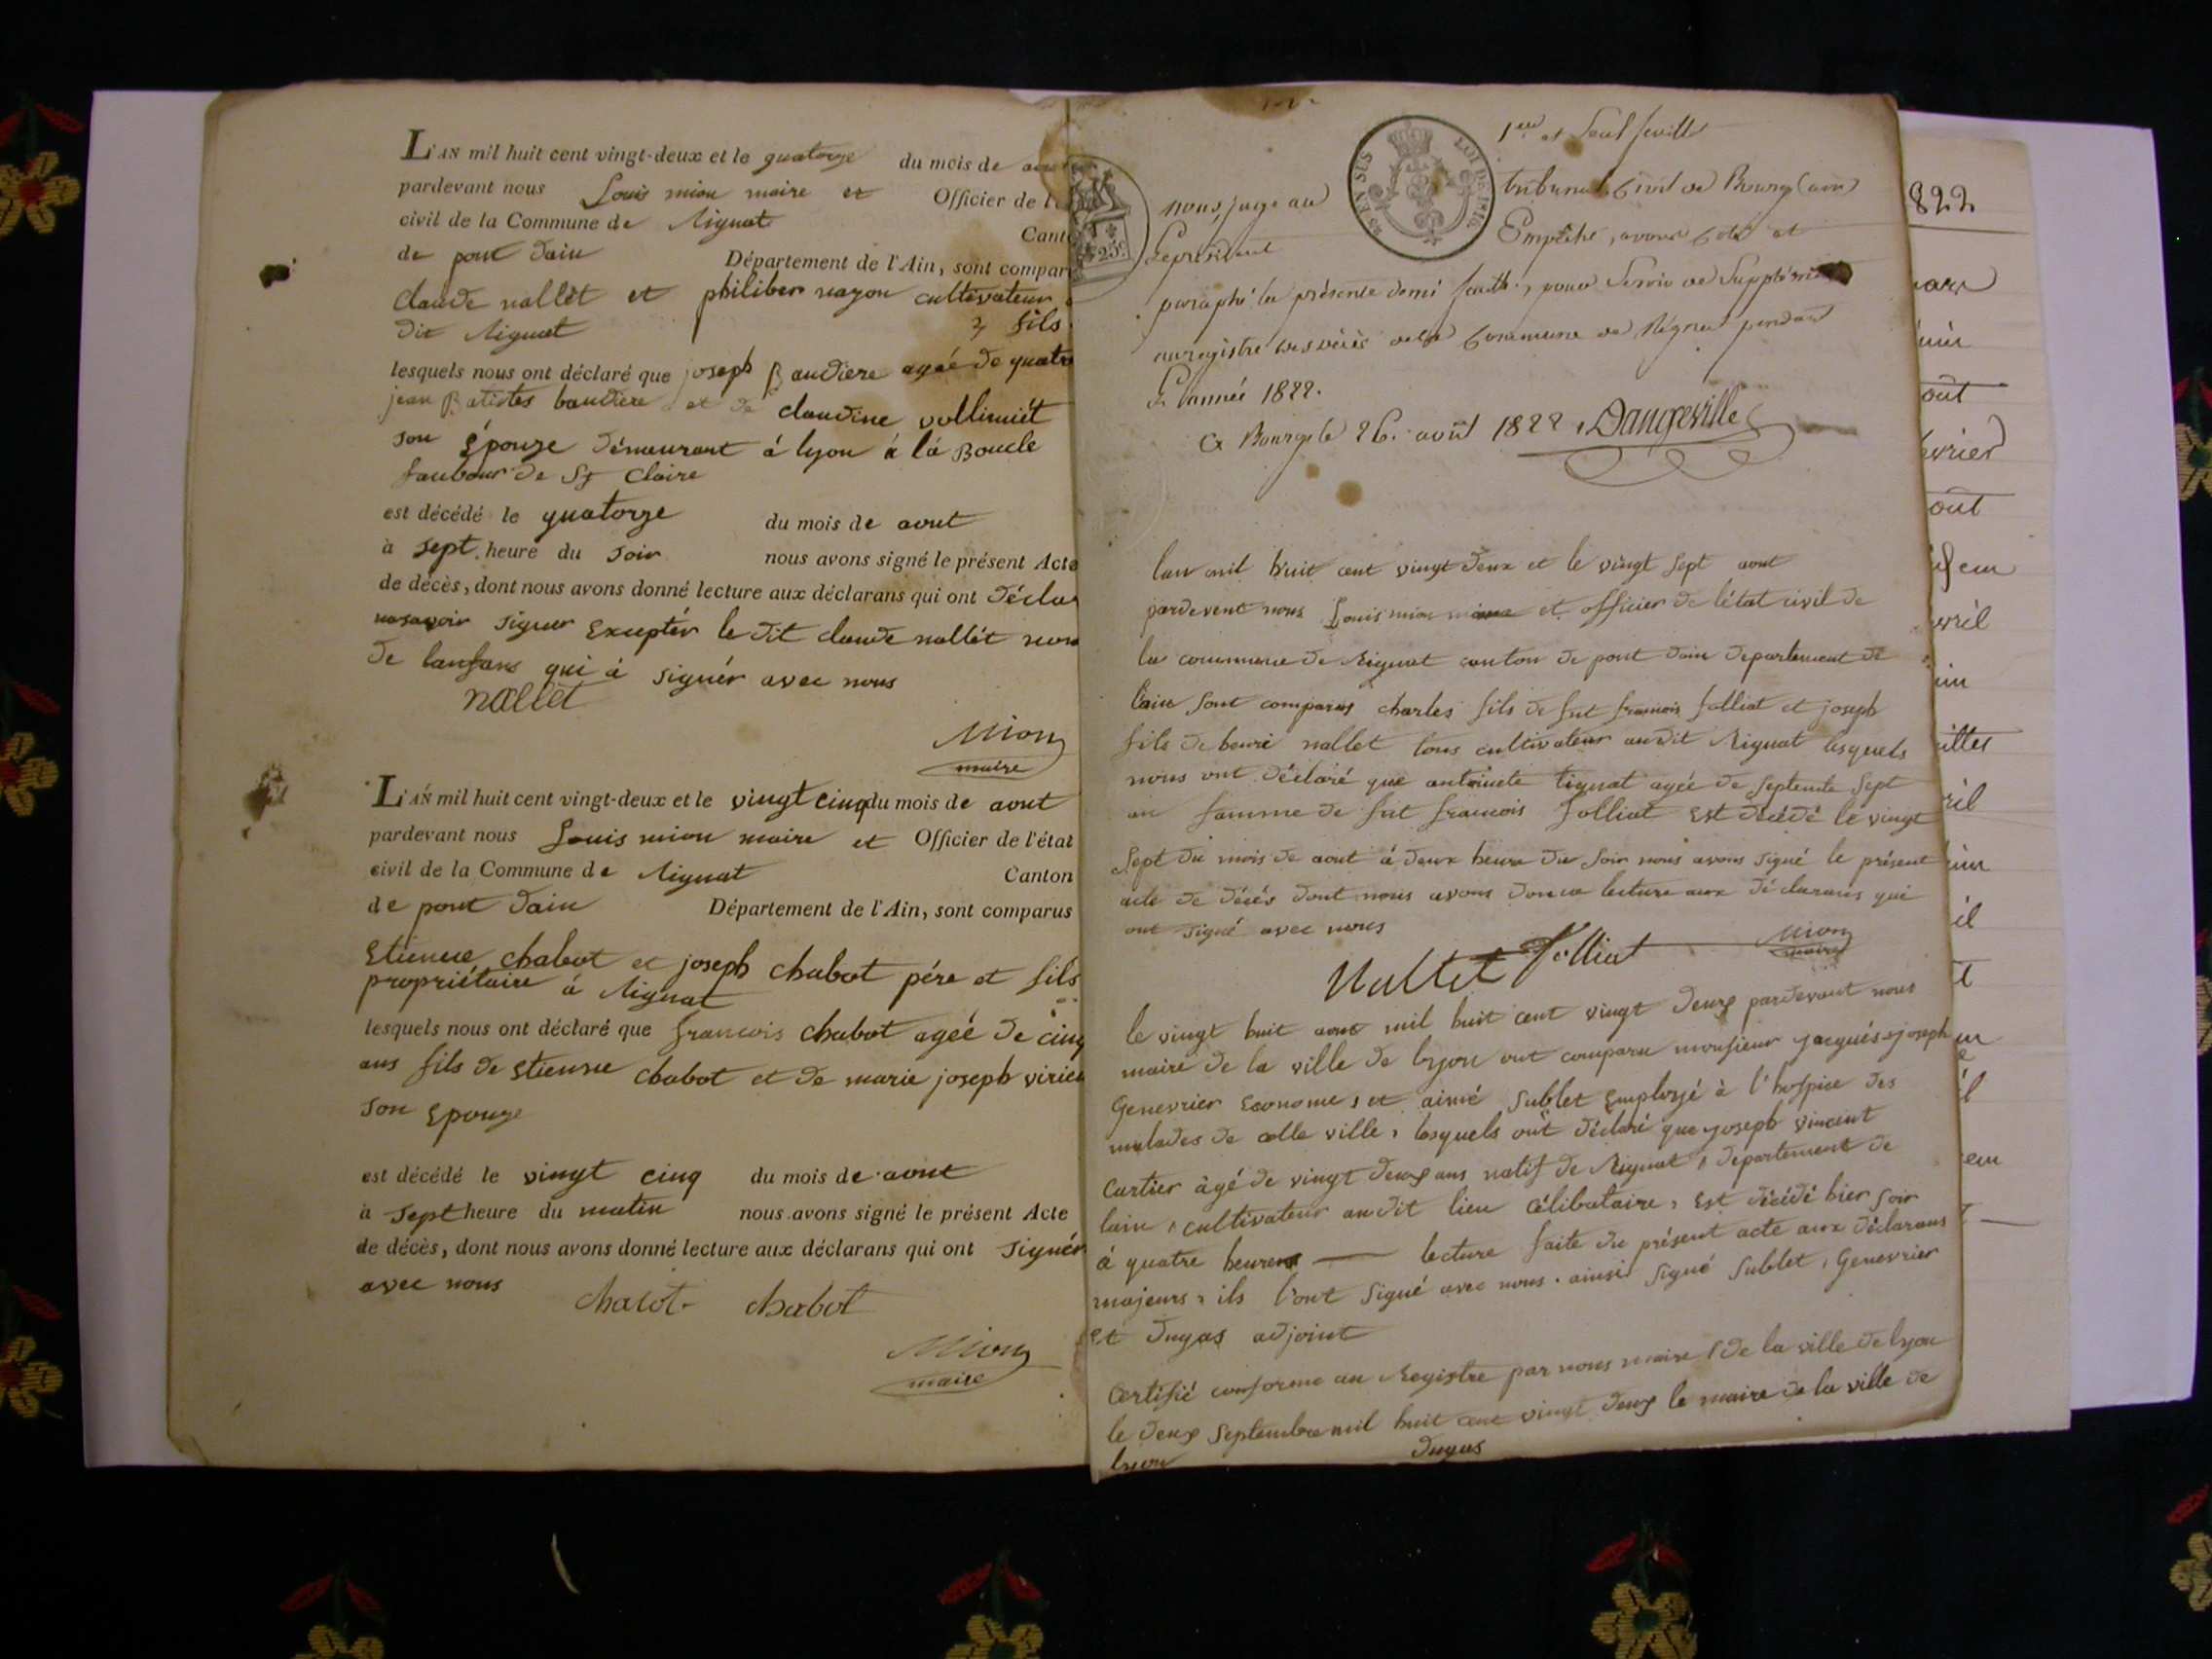 L'AN mil huit cent vingt-deux et le quatorze du mois de aout
pardevant nous Louis mion maire et Officier de l'é
civil de la Commune de Rignat Cant
de pont dain Département de l'Ain, sont compar
claude nallet et philiber nayon cultivateur
dit Rignat 2 fils
lesquels nous ont déclaré que joseph Baudiere ageé de quatre
jean Batistes baudiere et de claudine vollimiét
son épouze démeurant á lyon á lá Boucle
faubour de St Claire
est décédé le quatorze du mois de aout
à sept heure du soir nous avons signé le présent Acte
de décès, dont nous avons donné lecture aux déclarans qui ont déclar
nesavoir signer Exceptér le dit claude nallét
de lanfans qui á signér avec nous
nallet
Mion
maire
L'AN mil huit cent vingt-deux et le vingt cinq du mois de aout
pardevant nous Louis mion maire et Officier de l'état
civil de la Commune de Rignat Canton
de pont dain Département de l'Ain, sont comparus
Etienne chabot et joseph chabot pére et fils
propriétaire á Rignat
lesquels nous ont déclaré que francois chabot ageé de cinq
ans fils de Etienne chabot et de marie joseph virieu
son Epouze
est décédé le vingt cinq du mois de aout
à sept heure du matin nous avons signé le présent Acte
de décès, dont nous avons donné lecture aux déclarans qui ont signér
avec nous
chabot chabot
Mion
maire
1er et seul feuillet
EN SUS LOI DE 1816
25c
nous, juge au tribunal civil de Bourg (ain)
Le président Empêché, avons coté et
paraphé la présente demi feuille, pour servir de supplément
au registre des décès de la commune de Rignat pendant
L'année 1822.
a Bourg le 26 avril 1822, Dangeville
lan mil huit cent vingt deux et le vingt sept aout
pardevent nous Louis mion maire et officier de létat civil de
la commune de Rignat canton de pont dain département de
lain sont comparus charles fils de fut francois folliat et joseph
fils de henri nallet tous cultivateur au dit Rignat lesquels
nous ont déclaré que antoinete tignat ageé de septente sept
an famme de fut francois folliat est décédé le vingt
sept du mois de aout á deux heure du soir nous avons signé le présent
acte de décés dont nous avons donné lecture aux déclarans qui
ont signé avec nous
Nallet folliat Mion
maire
le vingt huit aout mil huit cent vingt deux pardevant nous
maire de la ville de lyon ont comparu monsieur jacqués joseph
Genevrier Econome, et aimé Sublet Employé à l'hospice des
malades de cette ville, lesquels ont déclaré que joseph vincent
Cartier àgé de vingt deux ans natif de Rignat, département de
lain, cultivateur au dit lieu célibataire, est décédé hier soir
á quatre heures — lecture faite du présent acte aux déclarans
majeurs, ils l'ont signé avec nous. ainsi signé Sublet, Genevrier
et dugas adjoint
Certifié conforme au Registre par nous maire de la ville de lyon
le deux Septembre mil huit cent vingt deux le maire de la ville de
lyon dugas
822
out
evrier
out
vril